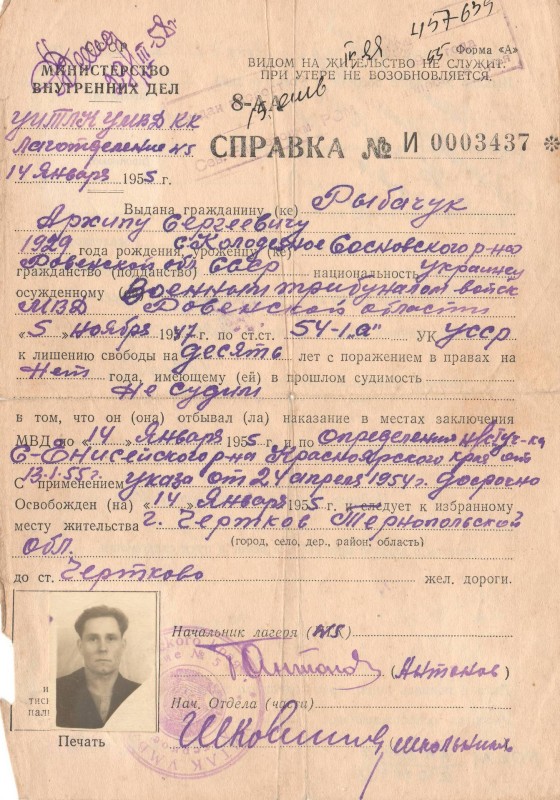 Р
МИНИСТЕРСТВО
ВНУТРЕННИХ ДЕЛ
Форма «А»
ВИДОМ НА ЖИТЕЛЬСТВО НЕ СЛУЖИТ.
ПРИ УТЕРЕ НЕ ВОЗОБНОВЛЯЕТСЯ.
457639
8-АА
УИТЛК УМВД КК
Лаготделение №5
14 Января 1955 г.
СПРАВКА № И 0003437 *
Выдана гражданину (ке) Рыбачук
Архипу Сергеевичу
1929 года рождения, уроженцу (ке) с. Колодезное Сосновского р-на
Ровенской обл СССР национальность Украинец
гражданство (подданство)
осужденному Военным трибуналом войск
МВД Ровенской области
«5» ноября 1947 г. по ст.ст. 54-1„а" УК УССР
к лишению свободы на десять лет с поражением в правах на
Нет года, имеющему (ей) в прошлом судимость
Не судим
в том, что он (она) отбывал (ла) наказание в местах заключения
МВД по «14» Января 1955 г. и по определения нарсуда
Енисейского р-на Красноярского края от
13.1.55 г.
С применением указа от 24 апреля 1954 г. досрочно
Освобожден (на) «14» Января 1955 г. и следует к избранному
месту жительства г. Чертков Тернопольской
обл.
(город, село, дер., район, область)
до ст. Чертково жел. дороги.
Начальник лагеря (№5)
(Антонов)
Нач. Отдела (части)
(Школьник
и
тиск
пал
Печать